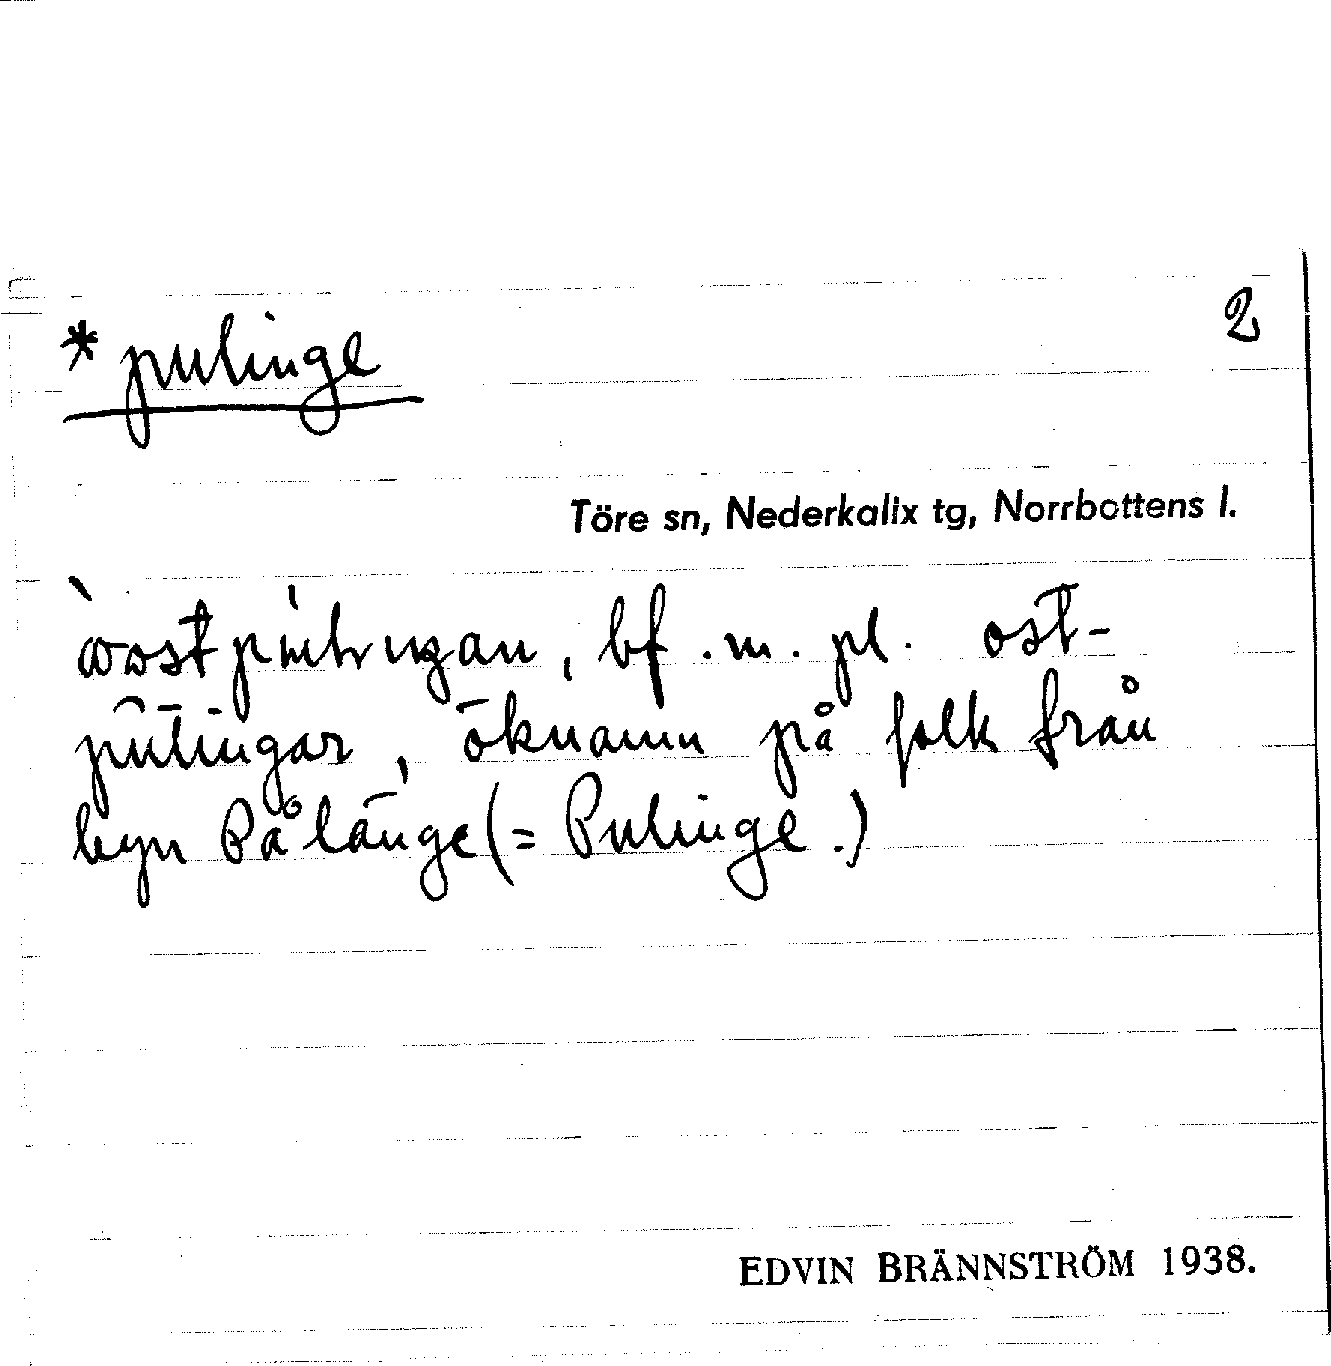 *pulinge
2
Töre sn, Nederkalix tg, Norrbottens l.
bf. m. pl. ost-
pulingar, öknamn på folk från
byn Pålänge (= Pulinge.)
EDVIN BRÄNNSTRÖM 1938.